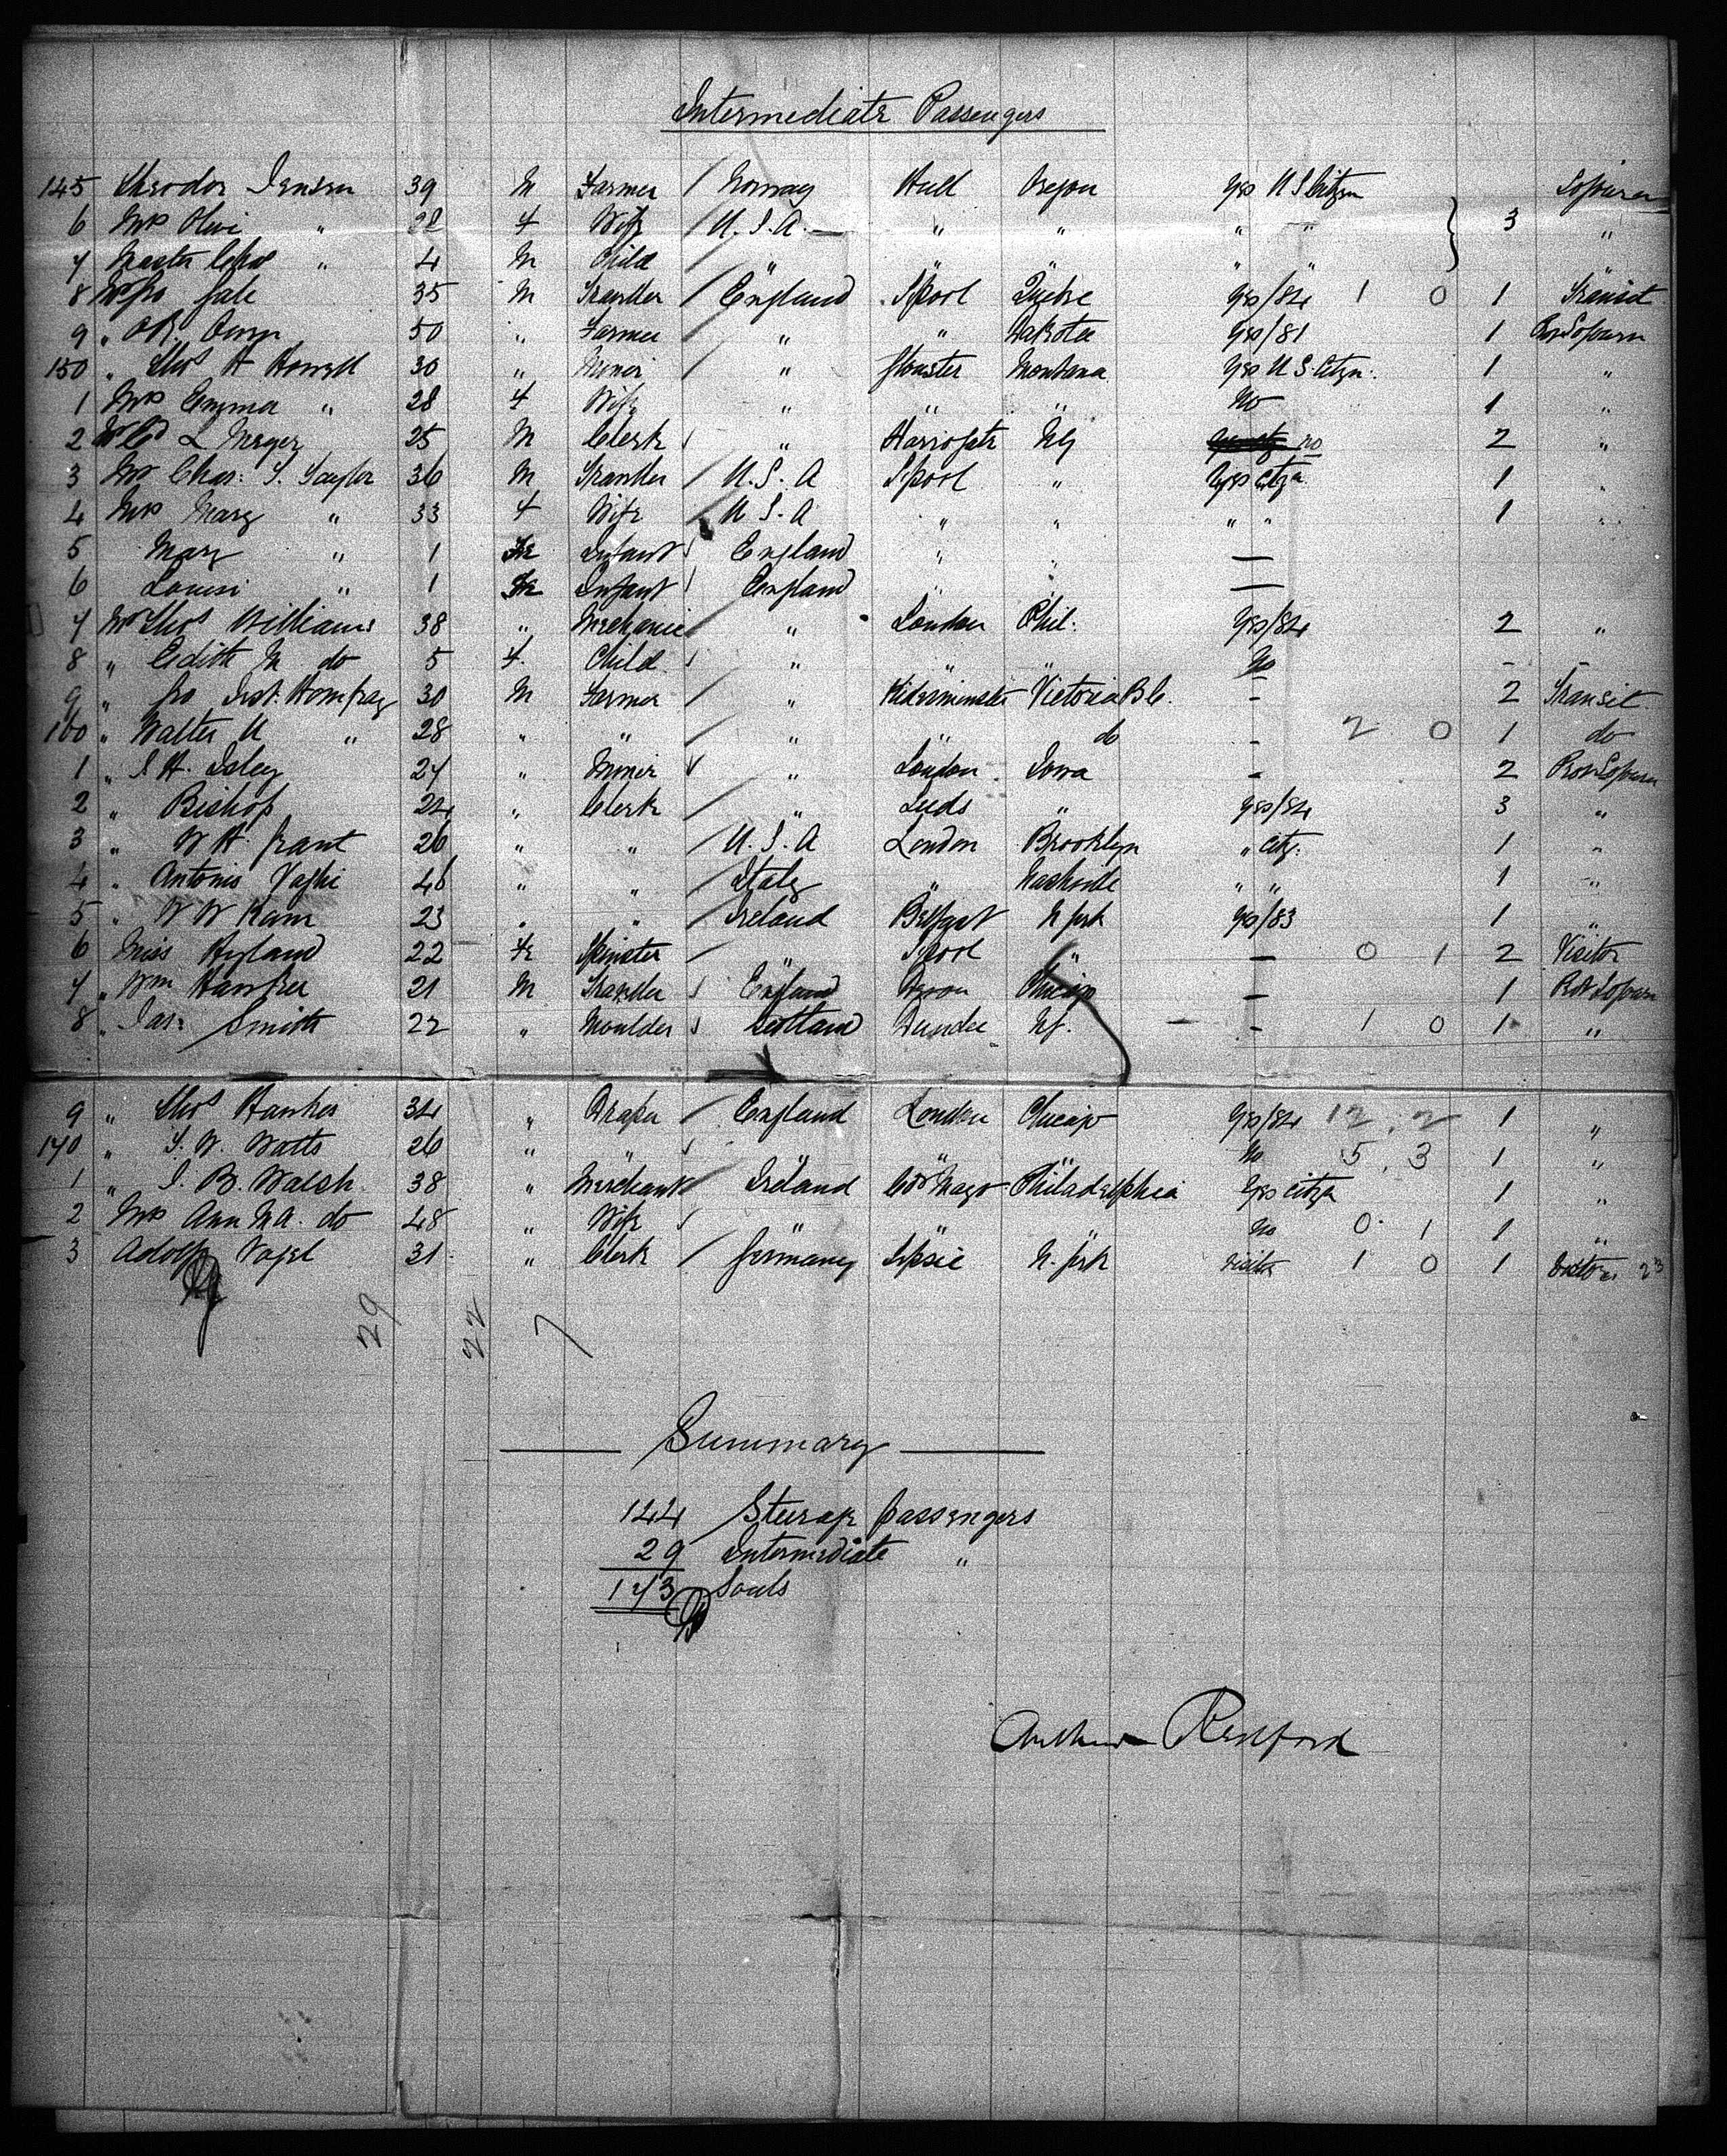 Intermediate Passengers
145 Theodor Jensen 39 M Farmer / Norway Hull Oregon Yes U S Citzn Sojourn
6 Mrs Olivi " 28 f Wife / U.S.A. " " " " } 3 "
7 Master Chas " 4 M Child / " " " " "
8 Mr Jno Gale 35 M Traveller / England L'pool Quebec Yes/84 1 0 1 Transit
9 " Owen 50 " Farmer / " " Dakota Yes/81 1 Sojourn
150 " Thos H Howell 30 " Miner / " Glouster Montana Yes U S Citzn. 1 "
1 Mrs Emma " 28 f Wife " " " No 1 "
2 L 25 M Clerk " Harrogate NY no 2 "
3 Mr Chas: S. Taylor 36 M Traveller / U.S.A L'pool " Yes Citzn 1 "
4 Mrs Mary " 33 f Wife / U S.A " " " " 1 "
5 Mary " 1 Fe Infant England " " —
6 Louisi " 1 Fe Infant England " —
7 Mr Thos Williams 38 " Mechanic " London Phil: Yes/84 2 "
8 " Edith M do 5 f. Child " " " No - -
9 " 30 M Farmer / " Kidderminster Victoria B C. - 2 Transit
160 " Walter U " 28 " " / " " do - 2 0 1 do
1 " 27 " Miner " London Iowa - 2 Sojourn
2 " Bishop 24 " Clerk / " Leeds " Yes/84 3 "
3 " W H. Grant 26 " " / U.S.A London Brooklyn " Citz: 1 "
4 " Antonio 46 " " / Italy " Nashville " " 1 "
5 " W W 23 " " / Ireland Belfast N York Yes/83 1 "
6 Miss Hyland 22 Fe Spinster / " L'pool " — 0 1 2 Visitor
7 " Wm 21 M Traveller England Chicago — 1 Sojourn
8 " Jas: Smith 22 " Moulder Scotland Dundee NY. - 1 0 1 "
9 " Thos Hawkes 34 " Draper / England London Chicago Yes/84 12 . 2 1 "
170 " S. W. Watts 26 " " " " " No 5 . 3 1 "
1 " J. B. Walsh 38 " Merchant Ireland Co Mayo Philadelphia Yes citzn 1 "
2 Mrs Ann M A. do 48 " Wife " " " No 0 1 1 "
3 Adolf Vogel 31 " Clerk / Germany Lipsic N. York Visitor 1 0 1 Visitor 23
29 22 7
— Summary —
144 Steerage passengers
29 Intermediate "
173 Souls
Arthur Redford